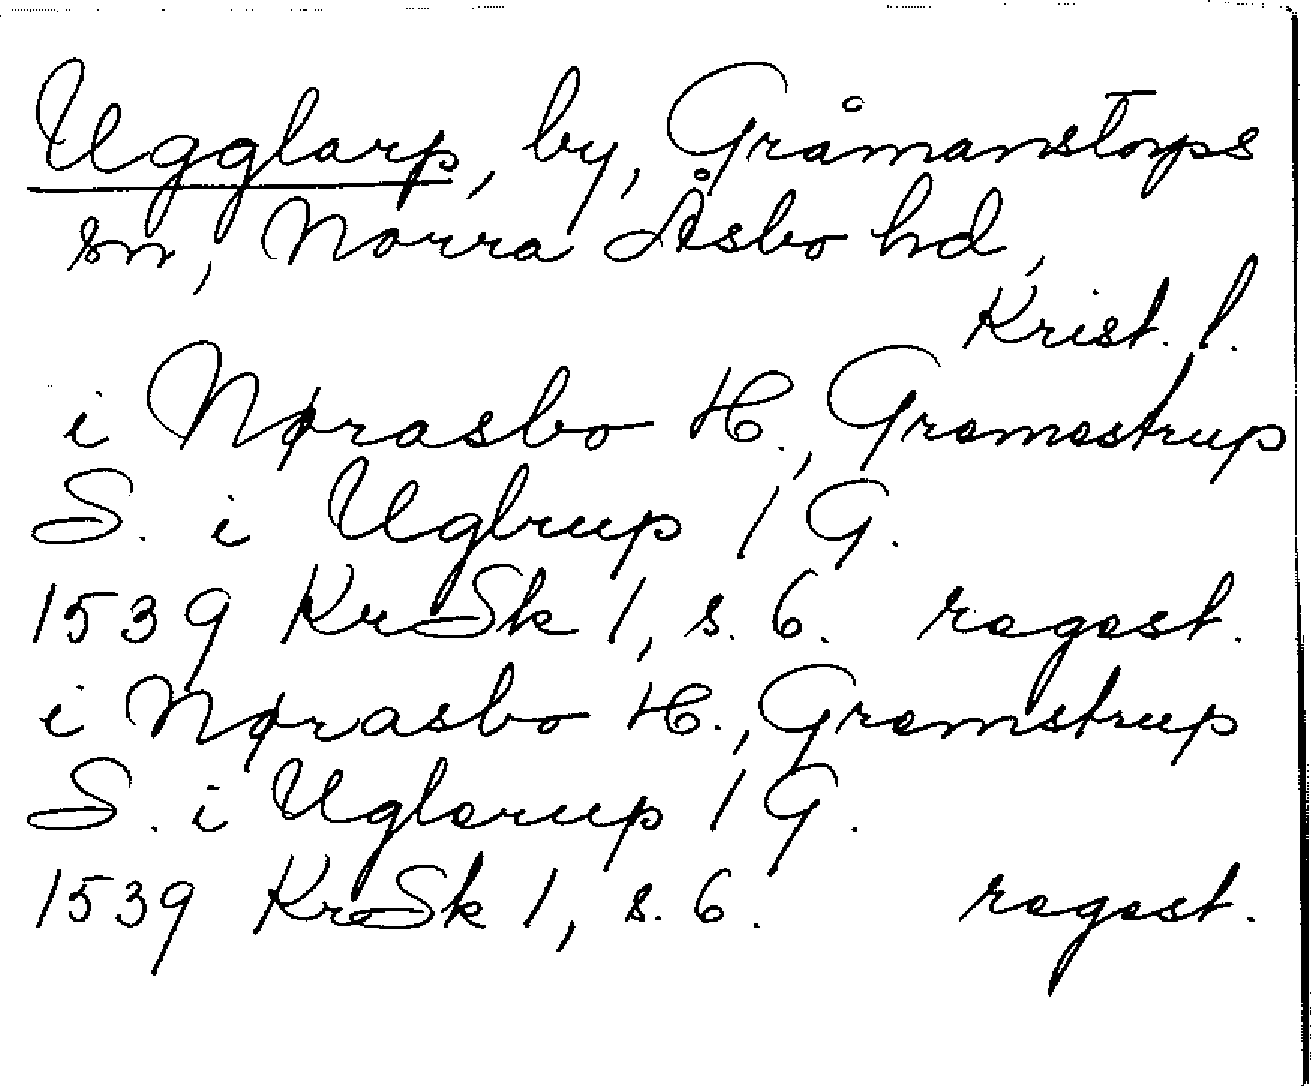 Ugglarp, by, Gråmanstorps
sn, Norra Åsbo hd,
Krist. l.
i Nørasbo H., Gramastrup
S. i Uglrup 1 G.
1539 KrSk 1, s. 6. ragast.
i Nørasbo H., Gramstrup
S. i Uglarup 1 G.
1539 KrSk 1, s. 6. ragast.